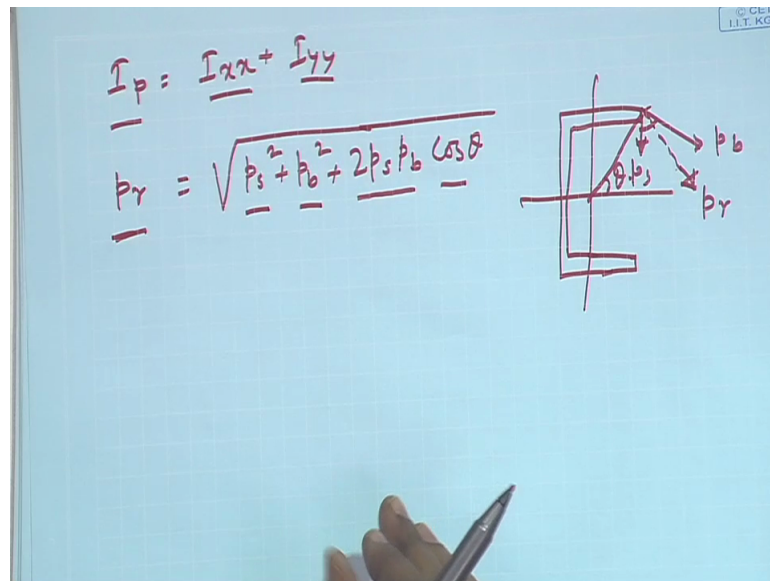 © CET
I.I.T. KG
I_p = I_xx + I_yy
p_r = √(p_s² + p_b² + 2p_s p_b cosθ)
p_b
θ p_s
p_r